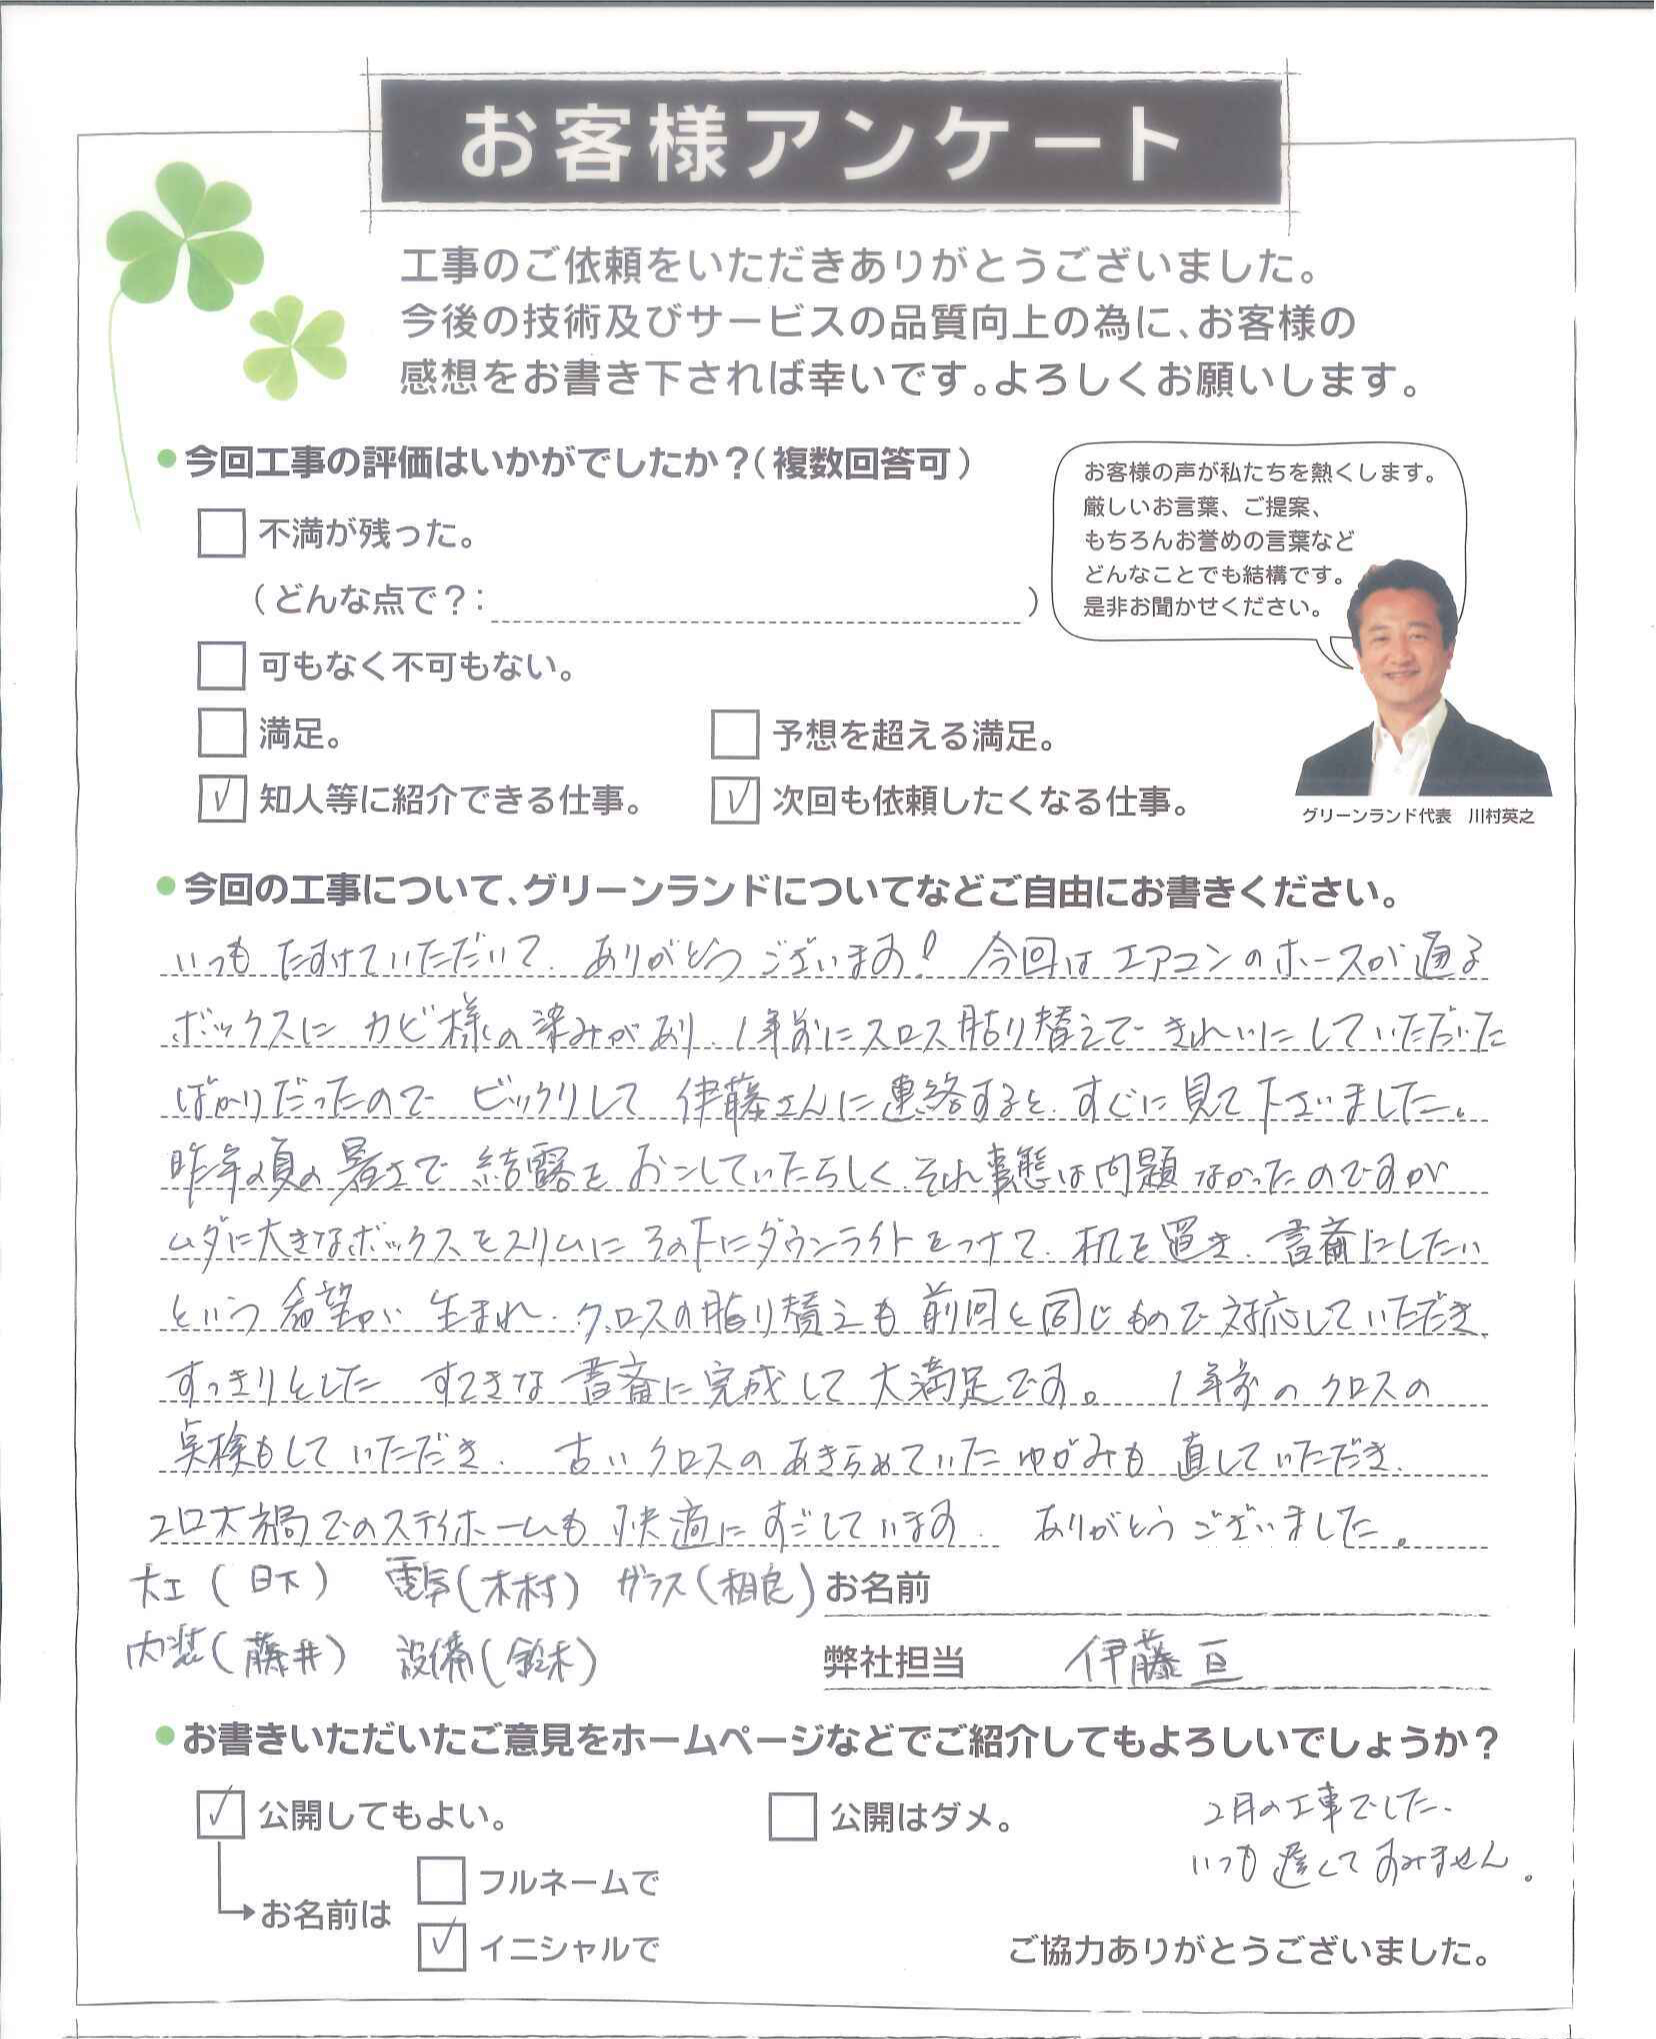 お客様アンケート
工事のご依頼をいただきありがとうございました。
今後の技術及びサービスの品質向上の為に、お客様の
感想をお書き下されば幸いです。よろしくお願いします。
今回工事の評価はいかがでしたか？（複数回答可）
不満が残った。
（どんな点で？：）
可もなく不可もない。
満足。
予想を超える満足。
知人等に紹介できる仕事。
次回も依頼したくなる仕事。
お客様の声が私たちを熱くします。
厳しいお言葉、ご提案、
もちろんお誉めの言葉など
どんなことでも結構です。
是非お聞かせください。
グリーンランド代表　川村英之
今回の工事について、グリーンランドについてなどご自由にお書きください。
いつも たすけていただいて、ありがとうございます！ 今回は エアコンのホースが通る
ボックスに カビ様の染みがあり、1年前にクロス貼り替えで きれいにしていただいた
ばかりだったので ビックリして 伊藤さんに連絡すると、すぐに見て下さいました。
昨年の夏の暑さで 結露を おこしていたらしく、それ事態は問題なかったのですが
ムダに大きなボックスをスリムに その下にダウンライトをつけて、机を置き、書斎にしたい
という 希望が 生まれ、クロスの貼り替えも 前回と同じもので対応していただき、
すっきりとした すてきな 書斎に完成して 大満足です。 1年前のクロスの
点検もして いただき、 古いクロスの あきらめていた ゆがみも 直していただき、
コロナ禍でのステイホームも 快適に すごしています。 ありがとうございました。
大工（日下） 電気（木村） ガラス（相良）
お名前
内装（藤井） 設備（鈴木）
弊社担当 伊藤亘
お書きいただいたご意見をホームページなどでご紹介してもよろしいでしょうか？
公開してもよい。
公開はダメ。
2月の工事でした。
いつも 遅くて すみません。
お名前は
フルネームで
イニシャルで
ご協力ありがとうございました。